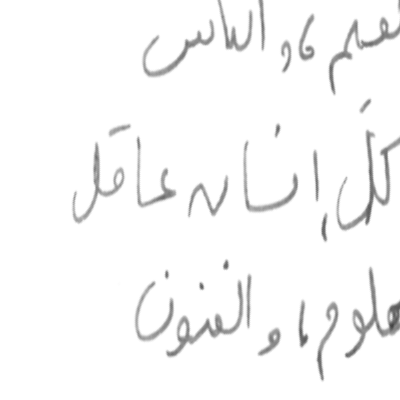 لعلم، والناس
كلّ إنسان عاقل
علوم، والفنون